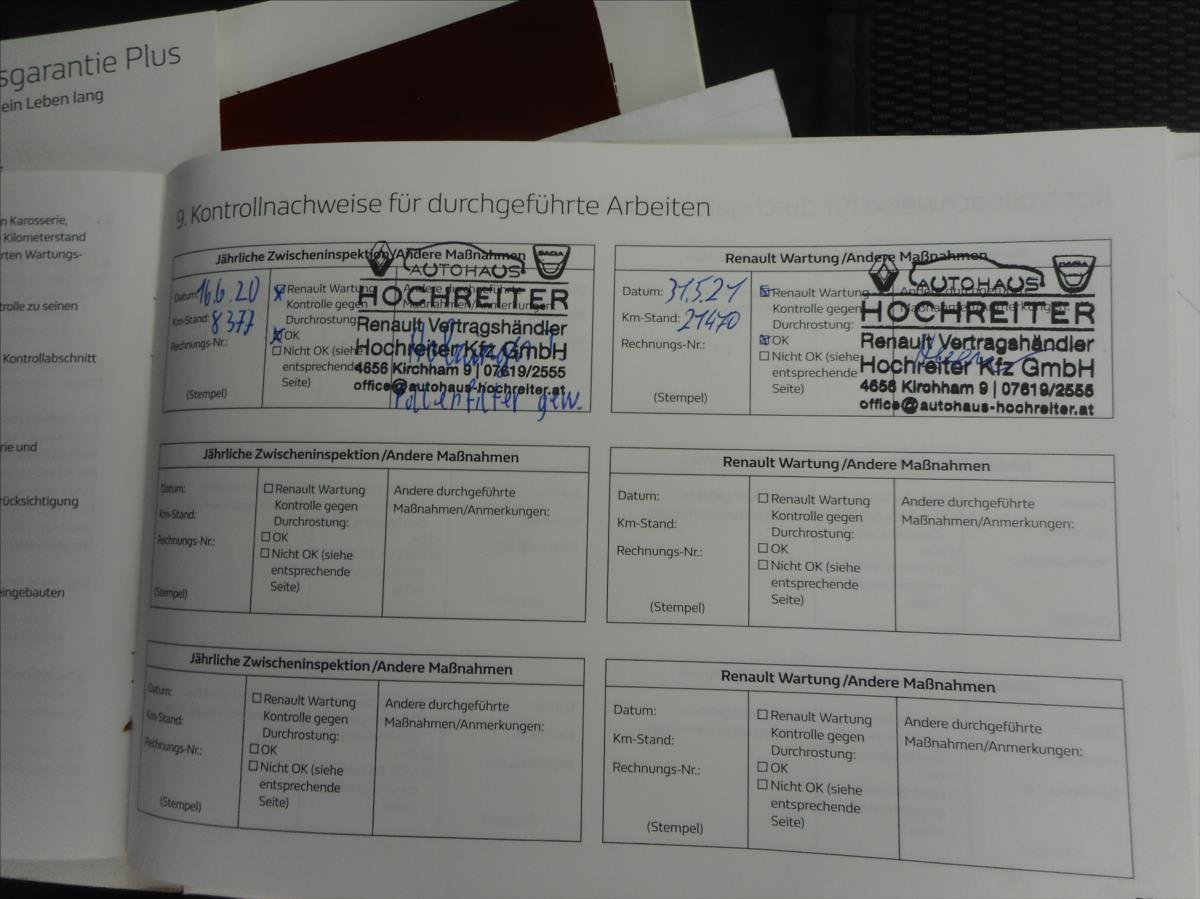 sgarantie Plus
ein Leben lang
n Karosserie,
Kilometerstand
rten Wartungs-
rolle zu seinen
Kontrollabschnitt
rie und
rücksichtigung
eingebauten
9. Kontrollnachweise für durchgeführte Arbeiten
Jährliche Zwischeninspektion/Andere Maßnahmen
Datum: 16.6.20
Km-Stand: 8377
Rechnungs-Nr.:
(Stempel)
Renault Wartung
Kontrolle gegen
Durchrostung:
OK
Nicht OK (siehe
entsprechende
Seite)
Andere durchgeführte
Maßnahmen/Anmerkungen:
DACIA
AUTOHAUS
HOCHREITER
Renault Vertragshändler
Hochreiter Kfz GmbH
4656 Kirchham 9 | 07619/2555
office@autohaus-hochreiter.at
Pollenfilter gew.
Renault Wartung/Andere Maßnahmen
Datum: 31.5.21
Km-Stand: 21470
Rechnungs-Nr.:
(Stempel)
Renault Wartung
Kontrolle gegen
Durchrostung:
OK
Nicht OK (siehe
entsprechende
Seite)
Andere durchgeführte
Maßnahmen/Anmerkungen:
DACIA
AUTOHAUS
HOCHREITER
Renault Vertragshändler
Hochreiter Kfz GmbH
4656 Kirchham 9 | 07619/2555
office@autohaus-hochreiter.at
Jährliche Zwischeninspektion/Andere Maßnahmen
Datum:
Km-Stand:
Rechnungs-Nr.:
(Stempel)
Renault Wartung
Kontrolle gegen
Durchrostung:
OK
Nicht OK (siehe
entsprechende
Seite)
Andere durchgeführte
Maßnahmen/Anmerkungen:
Renault Wartung/Andere Maßnahmen
Datum:
Km-Stand:
Rechnungs-Nr.:
(Stempel)
Renault Wartung
Kontrolle gegen
Durchrostung:
OK
Nicht OK (siehe
entsprechende
Seite)
Andere durchgeführte
Maßnahmen/Anmerkungen:
Jährliche Zwischeninspektion/Andere Maßnahmen
Datum:
Km-Stand:
Rechnungs-Nr.:
(Stempel)
Renault Wartung
Kontrolle gegen
Durchrostung:
OK
Nicht OK (siehe
entsprechende
Seite)
Andere durchgeführte
Maßnahmen/Anmerkungen:
Renault Wartung/Andere Maßnahmen
Datum:
Km-Stand:
Rechnungs-Nr.:
(Stempel)
Renault Wartung
Kontrolle gegen
Durchrostung:
OK
Nicht OK (siehe
entsprechende
Seite)
Andere durchgeführte
Maßnahmen/Anmerkungen: